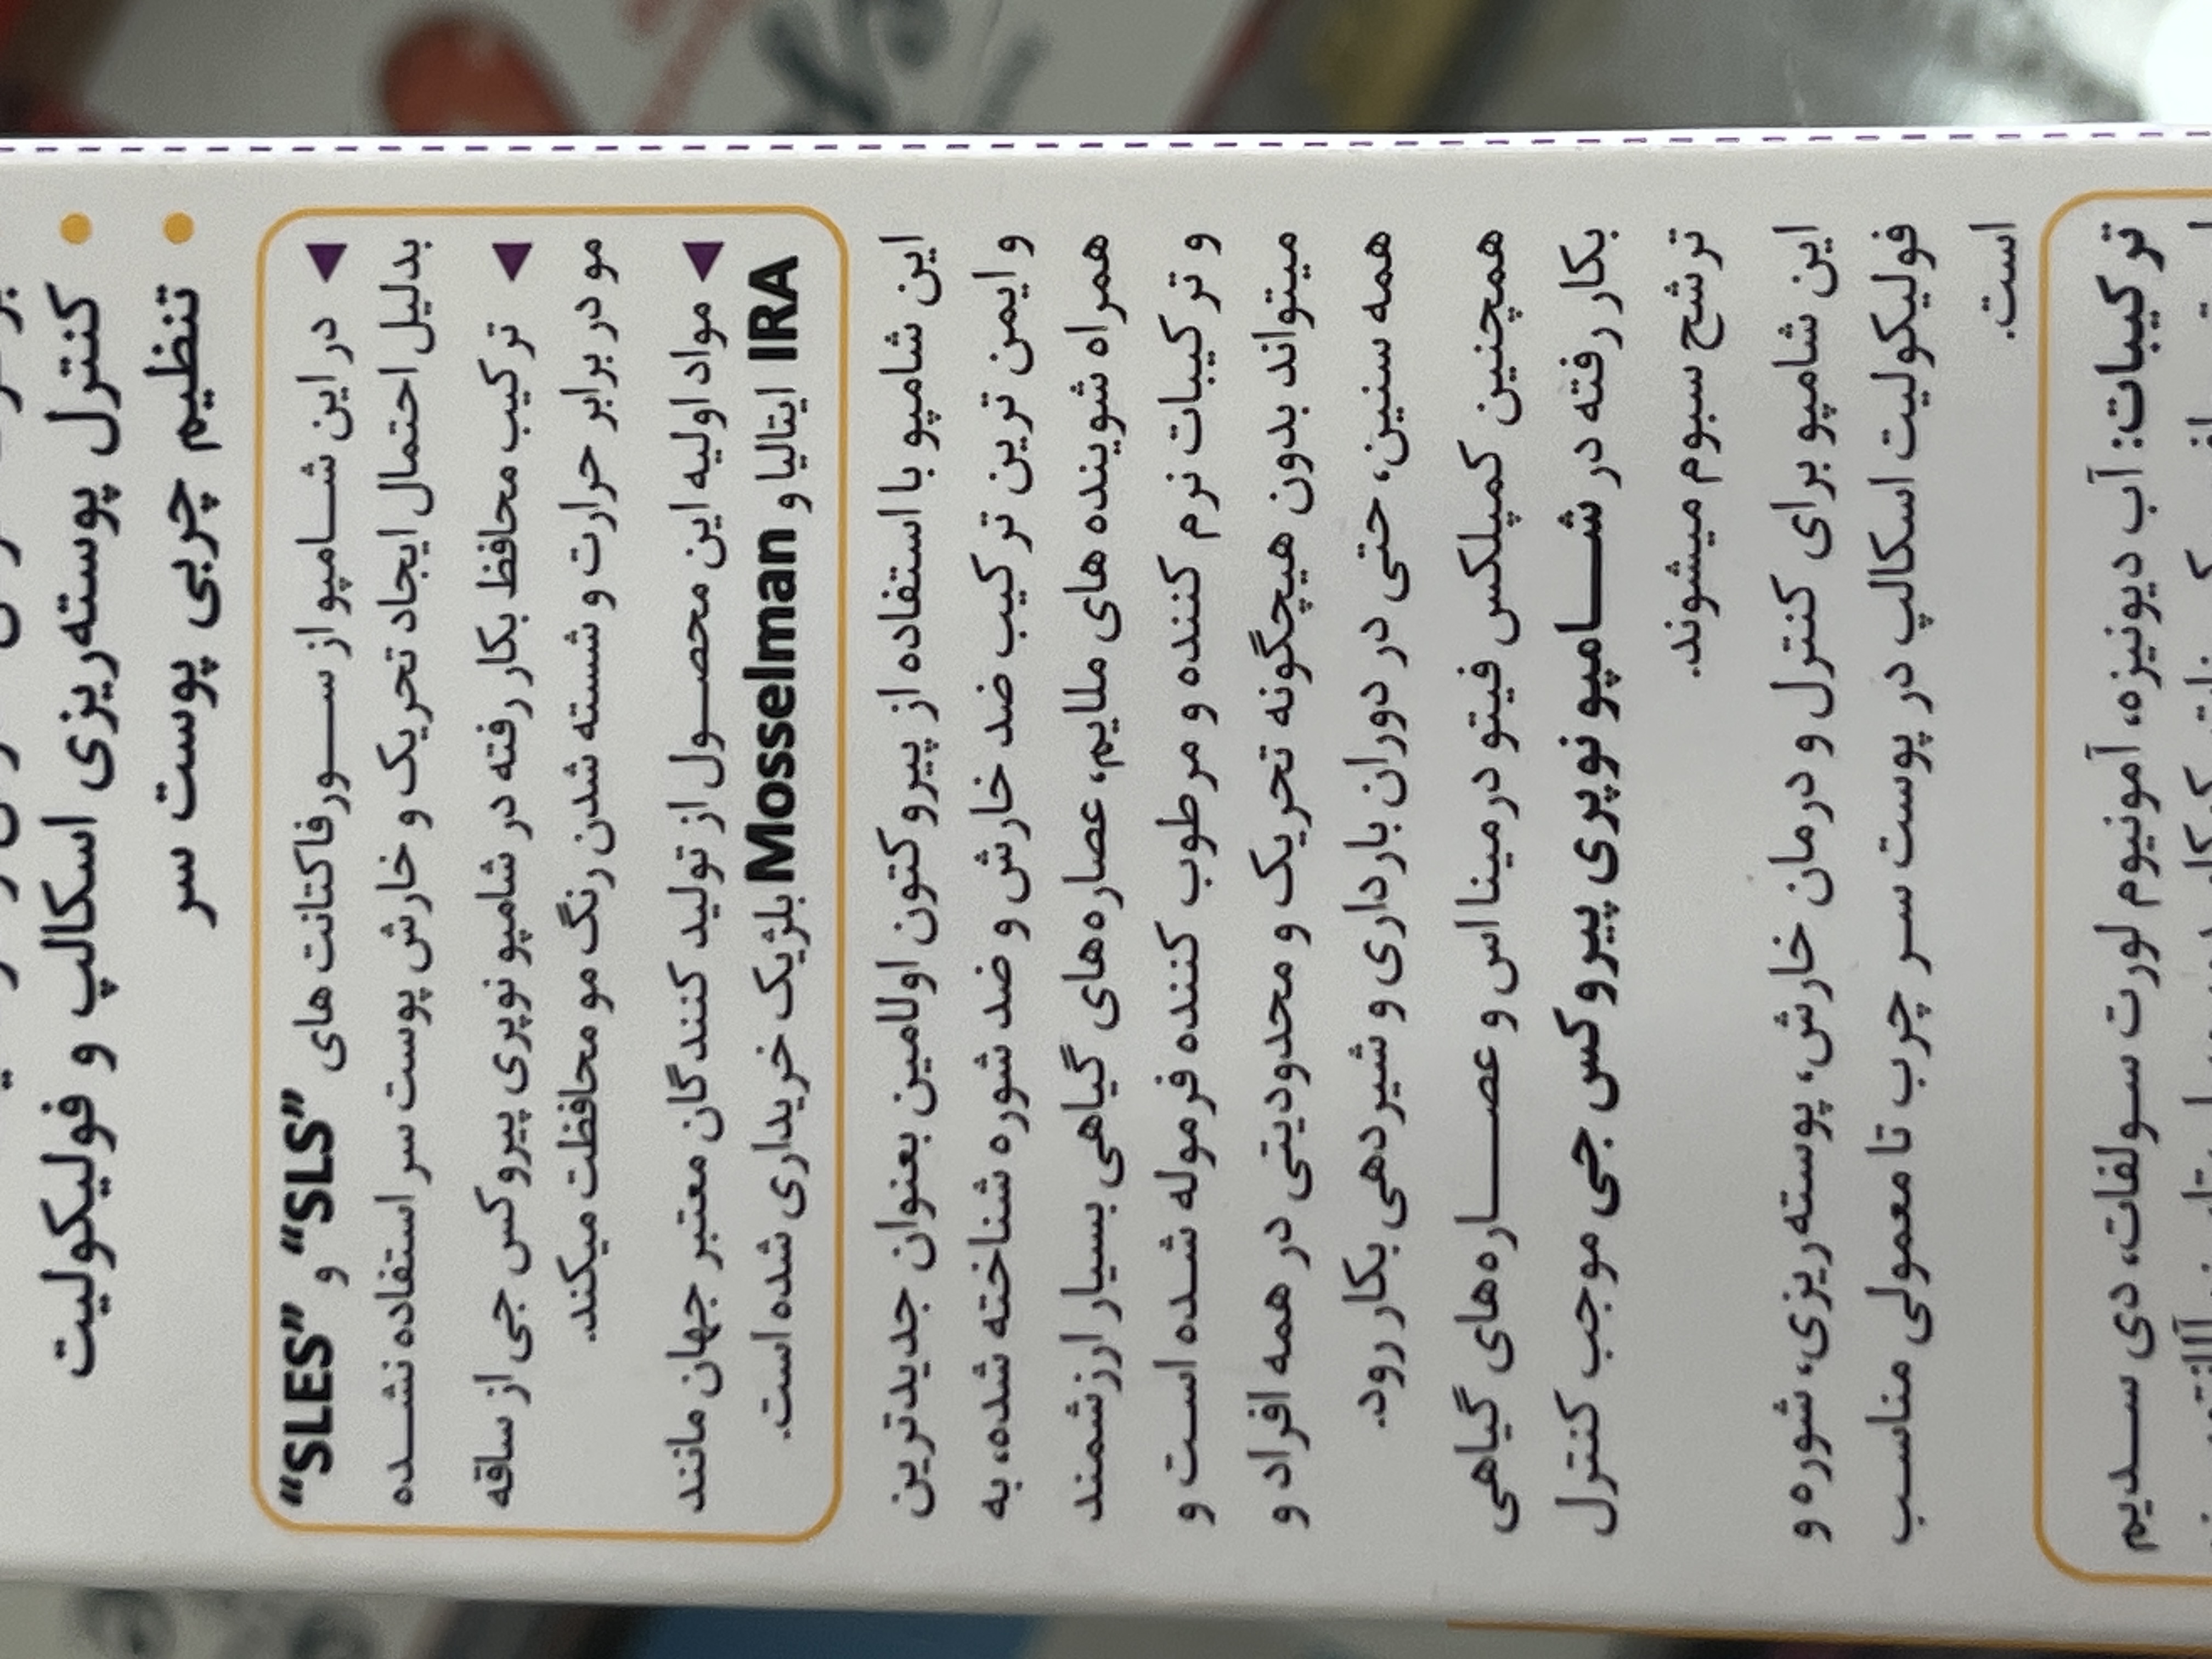 کنترل پوسته‌ریزی اسکالپ و فولیکولیت
تنظیم چربی پوست سر
در این شـــامپو از ســـورفاکتانت های “SLS” و “SLES”
بدلیل احتمال ایجاد تحریک و خارش پوست سر استفاده نشـــده
ترکیب محافظ بکار رفته در شامپو نوپری پیروکس جی از ساقه
مو در برابر حرارت و شسته شدن رنگ مو محافظت میکند.
مواد اولیه این محصـــول از تولید کنندگان معتبر جهان مانند
IRA ایتالیا و Mosselman بلژیک خریداری شده است.
این شامپو با استفاده از پیروکتون اولامین بعنوان جدیدترین
و ایمن ترین ترکیب ضد خارش و ضد شوره شناخته شده، به
همراه شوینده های ملایم، عصاره‌های گیاهی بسیار ارزشمند
و ترکیبات نرم کننده و مرطوب کننده فرموله شـده اسـت و
میتواند بدون هیچگونه تحریک و محدودیتی در همه افراد و
همه سنین، حتی در دوران بارداری و شیردهی بکار رود.
همچنین کمپلکس فیتو درمینا اس و عصـــاره‌های گیاهی
بکار رفته در شـــامپو نوپری پیروکس جی موجب کنترل
ترشح سبوم میشوند.
این شامپو برای کنترل و درمان خارش، پوسته‌ریزی، شوره و
فولیکولیت اسکالپ در پوست سـر چرب تا معمولی مناسـب
است.
ترکیبات: آب دیونیزه، آمونیوم لورت سـولفات، دی سـدیم